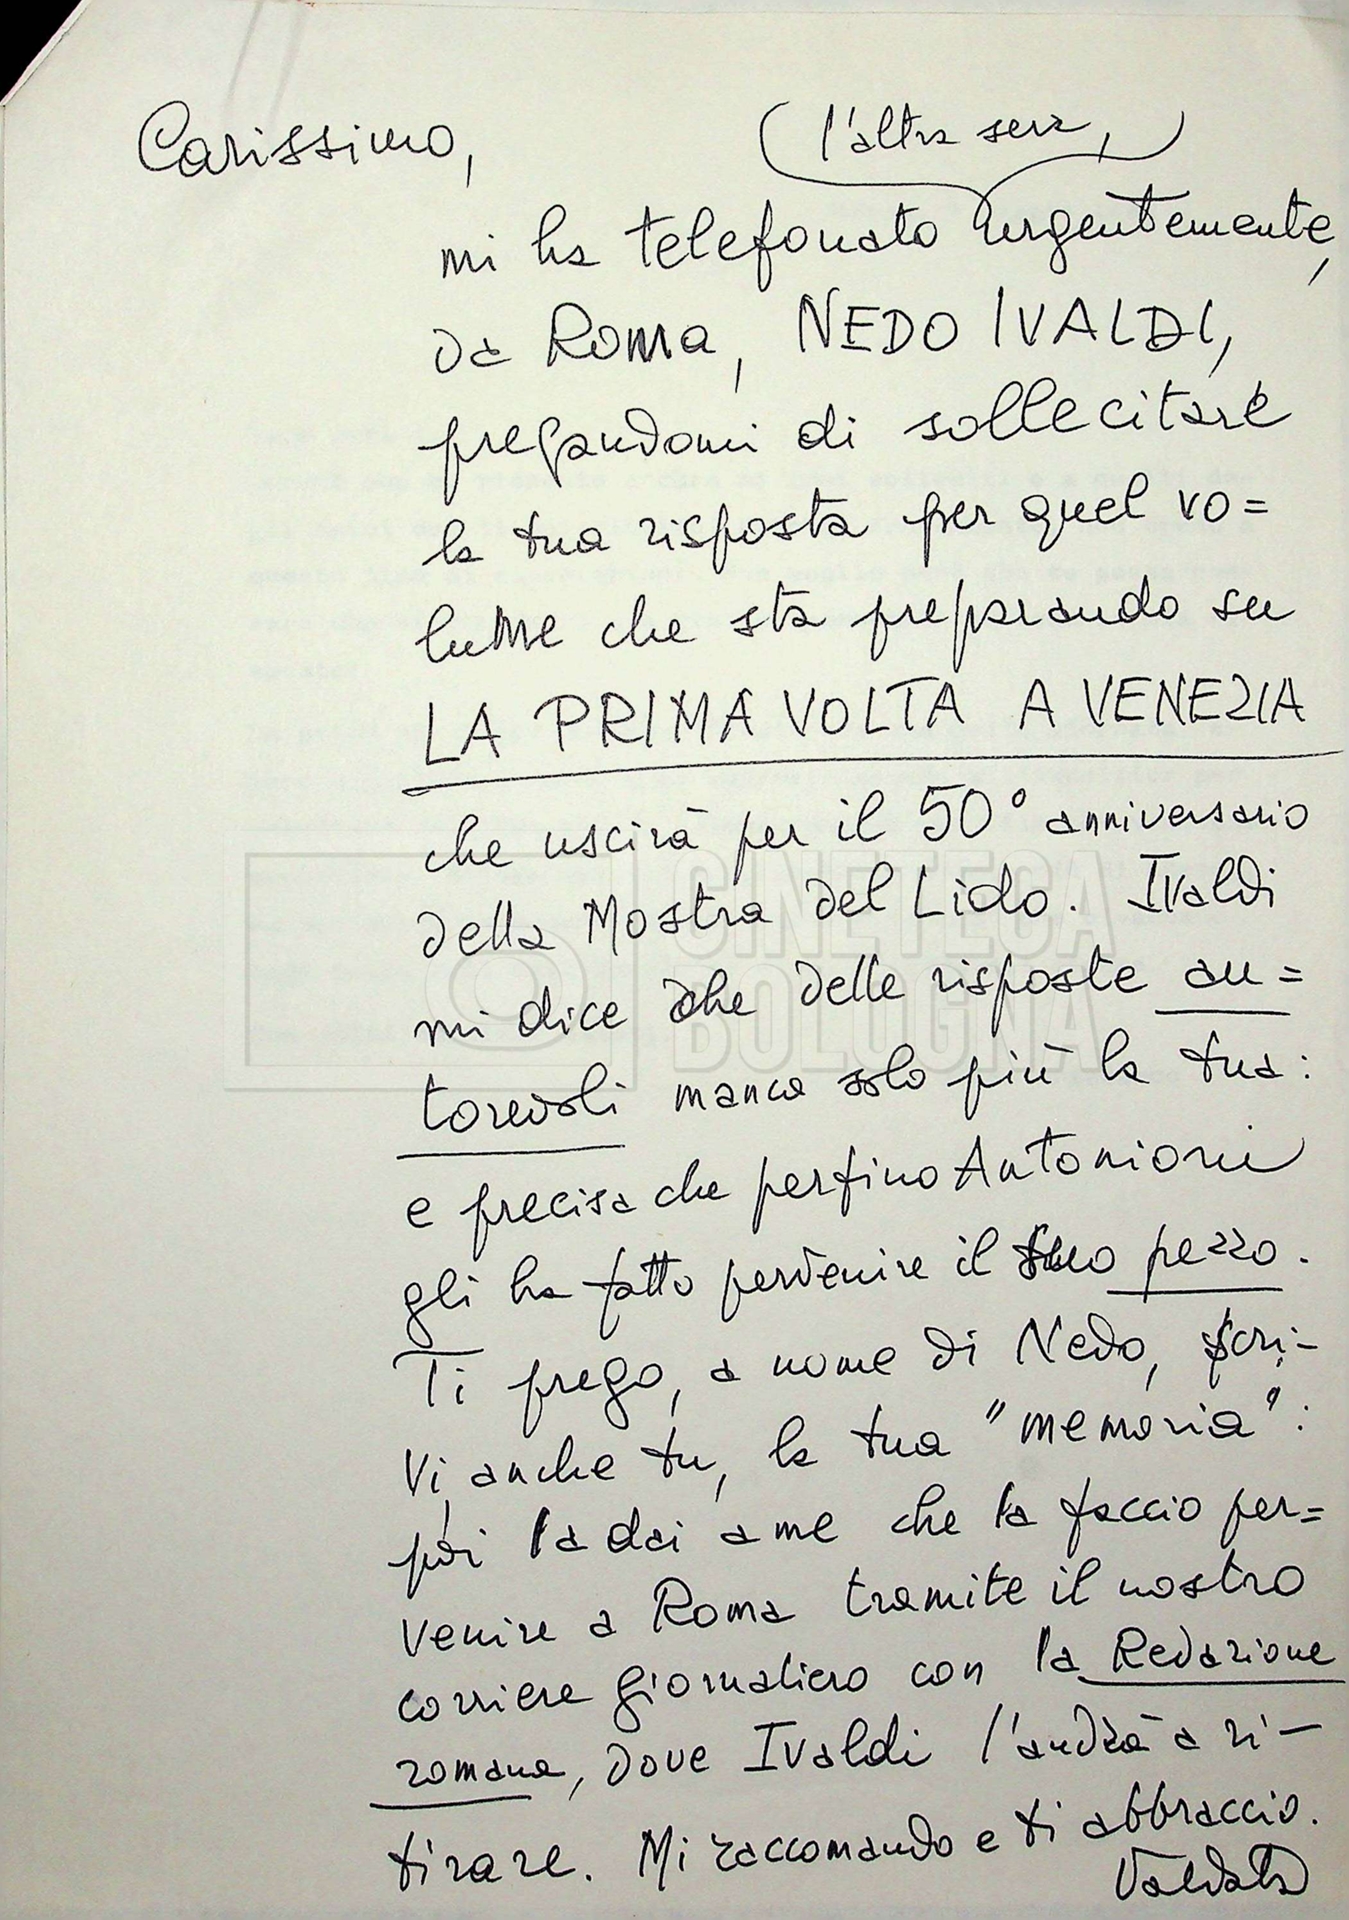 Carissimo,
(l'altra sera,)
mi ha telefonato urgentemente,
da Roma, NEDO IVALDI,
pregandomi di sollecitare
la tua risposta per quel vo=
lume che sta preparando su
LA PRIMA VOLTA A VENEZIA
che uscirà per il 50° anniversario
della Mostra del Lido. Ivaldi
mi dice che delle risposte au=
torevoli manca solo più la tua:
e precisa che perfino Antonioni
gli ha fatto pervenire il suo pezzo.
Ti prego, a nome di Nedo, scri-
vi, anche tu, la tua "memoria":
poi la dai a me che la faccio per=
venire a Roma tramite il nostro
corriere giornaliero con la Redazione
romana, dove Ivaldi l'andrà a ri-
tirare. Mi raccomando e ti abbraccio.
Valdata
CINETECA
BOLOGNA